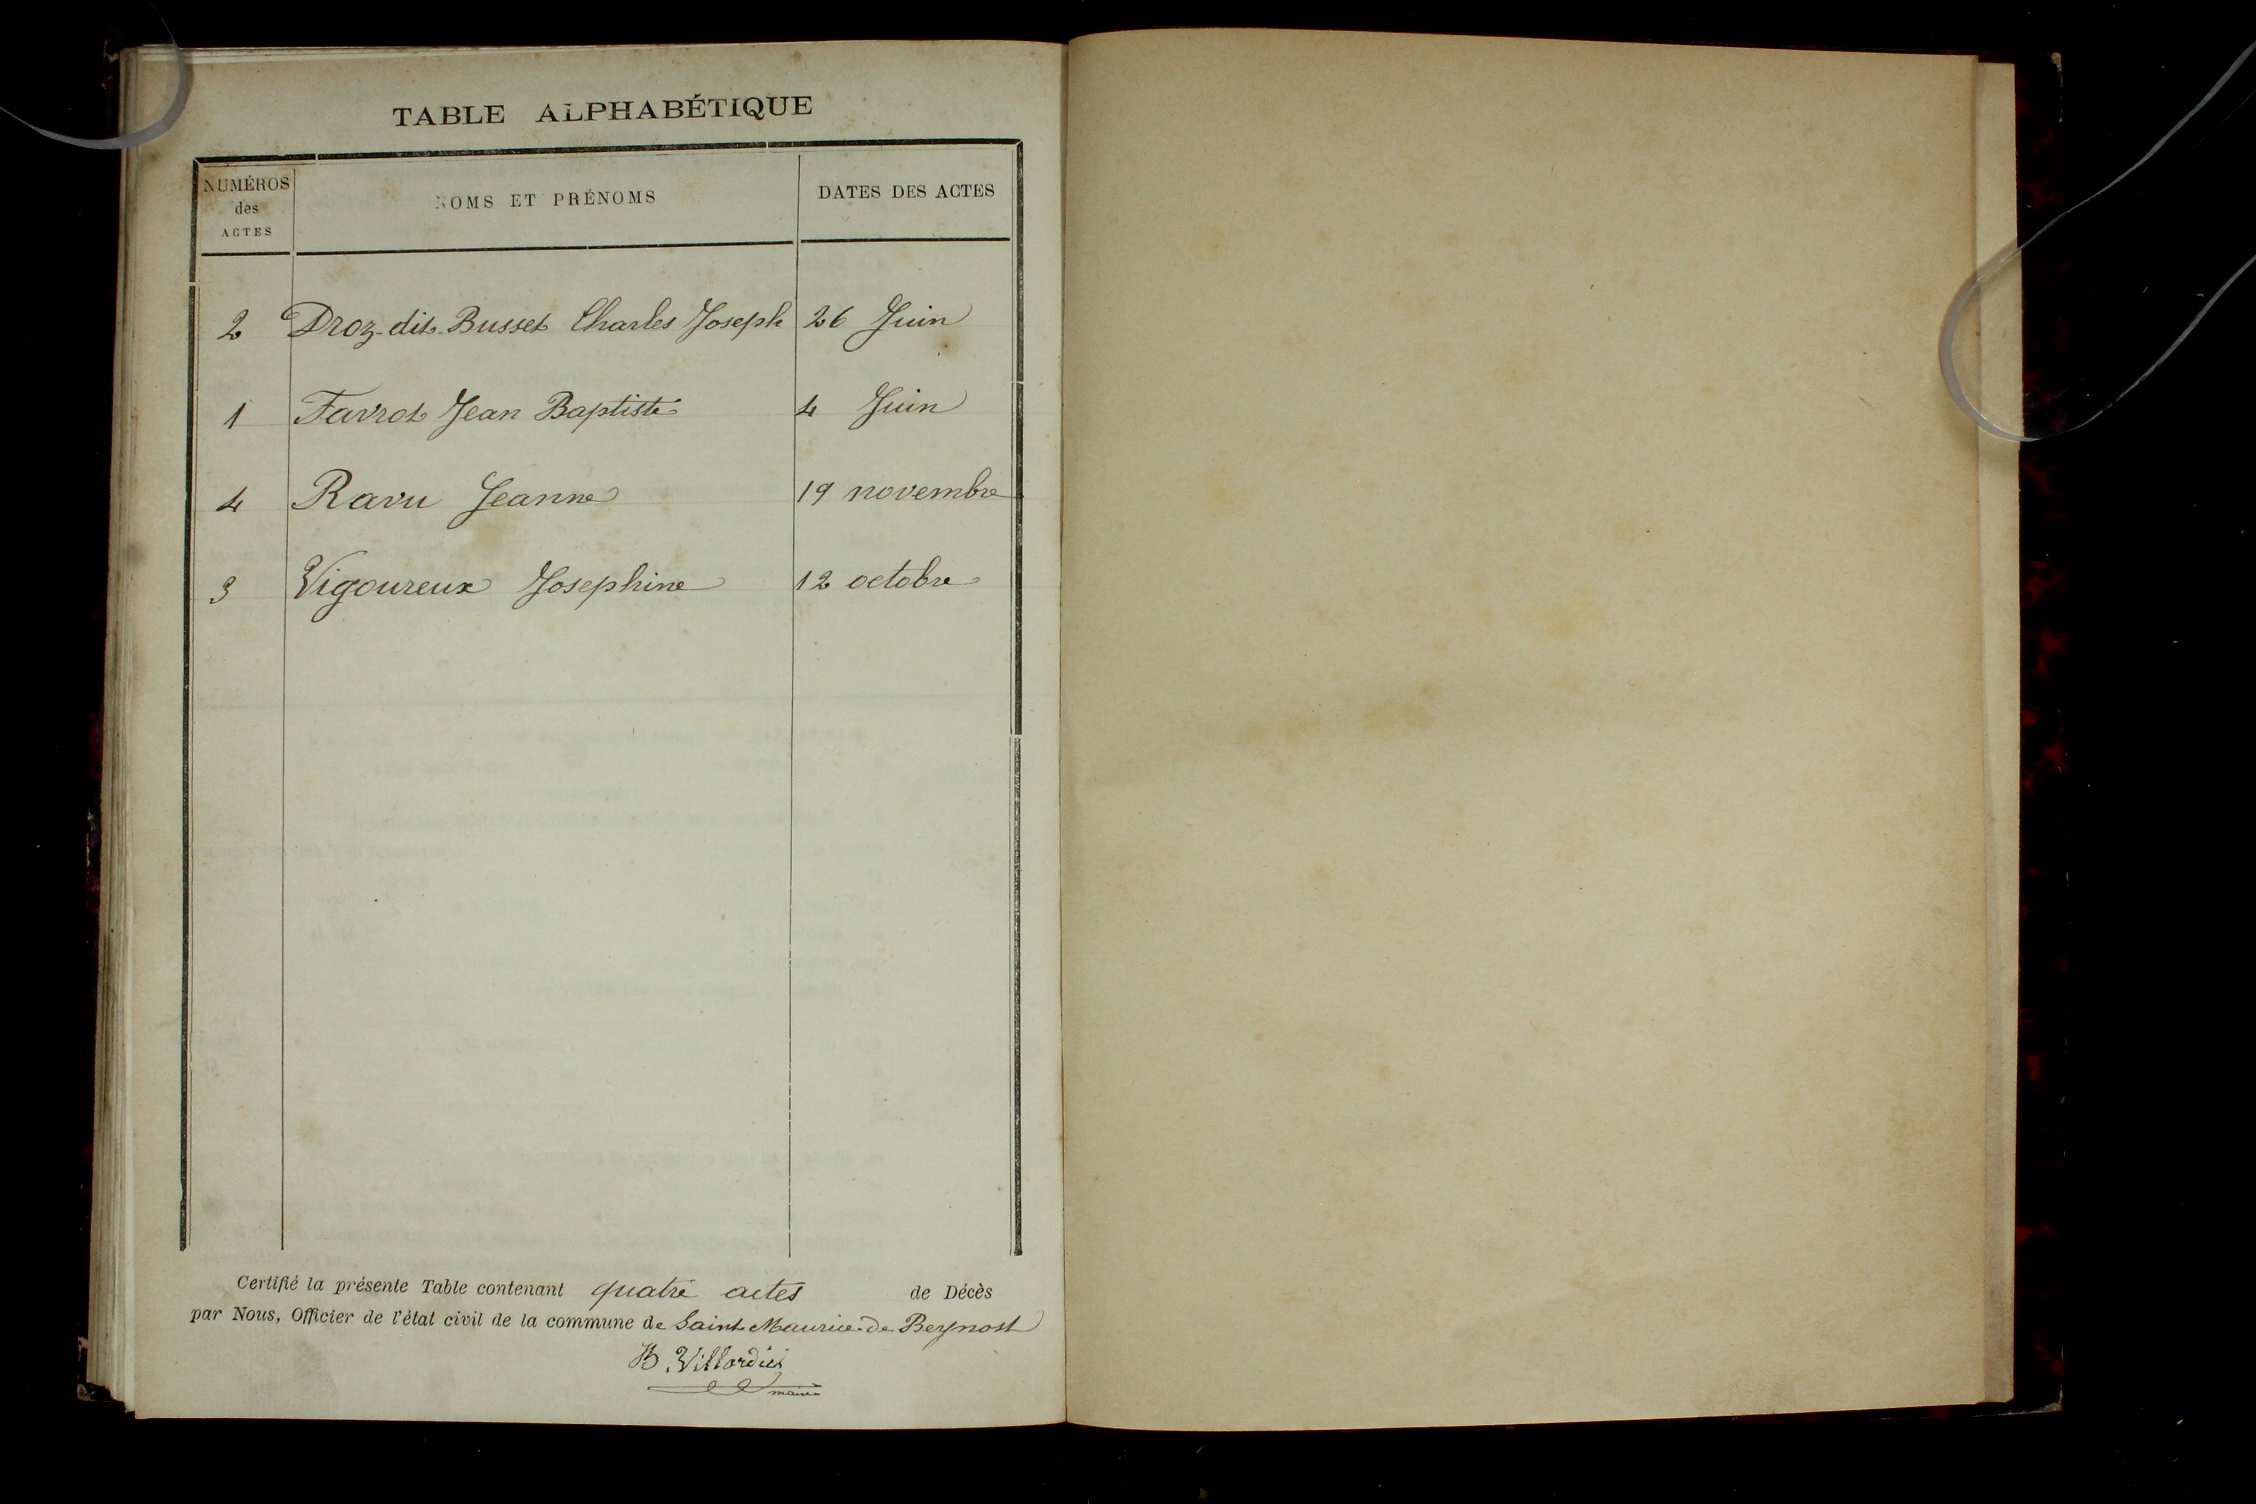 TABLE ALPHABÉTIQUE
NUMÉROS
des
ACTES
NOMS ET PRÉNOMS
DATES DES ACTES
2 Droz-dit-Busset Charles Joseph 26 Juin
1 Favrot Jean Baptiste 4 Juin
4 Ravu Jeanne 19 novembre
3 Vigoureux Josephine 12 octobre
Certifié la présente Table contenant quatre actes de Décès
par Nous, Officier de l'état civil de la commune de Saint Maurice-de-Beynost
maire